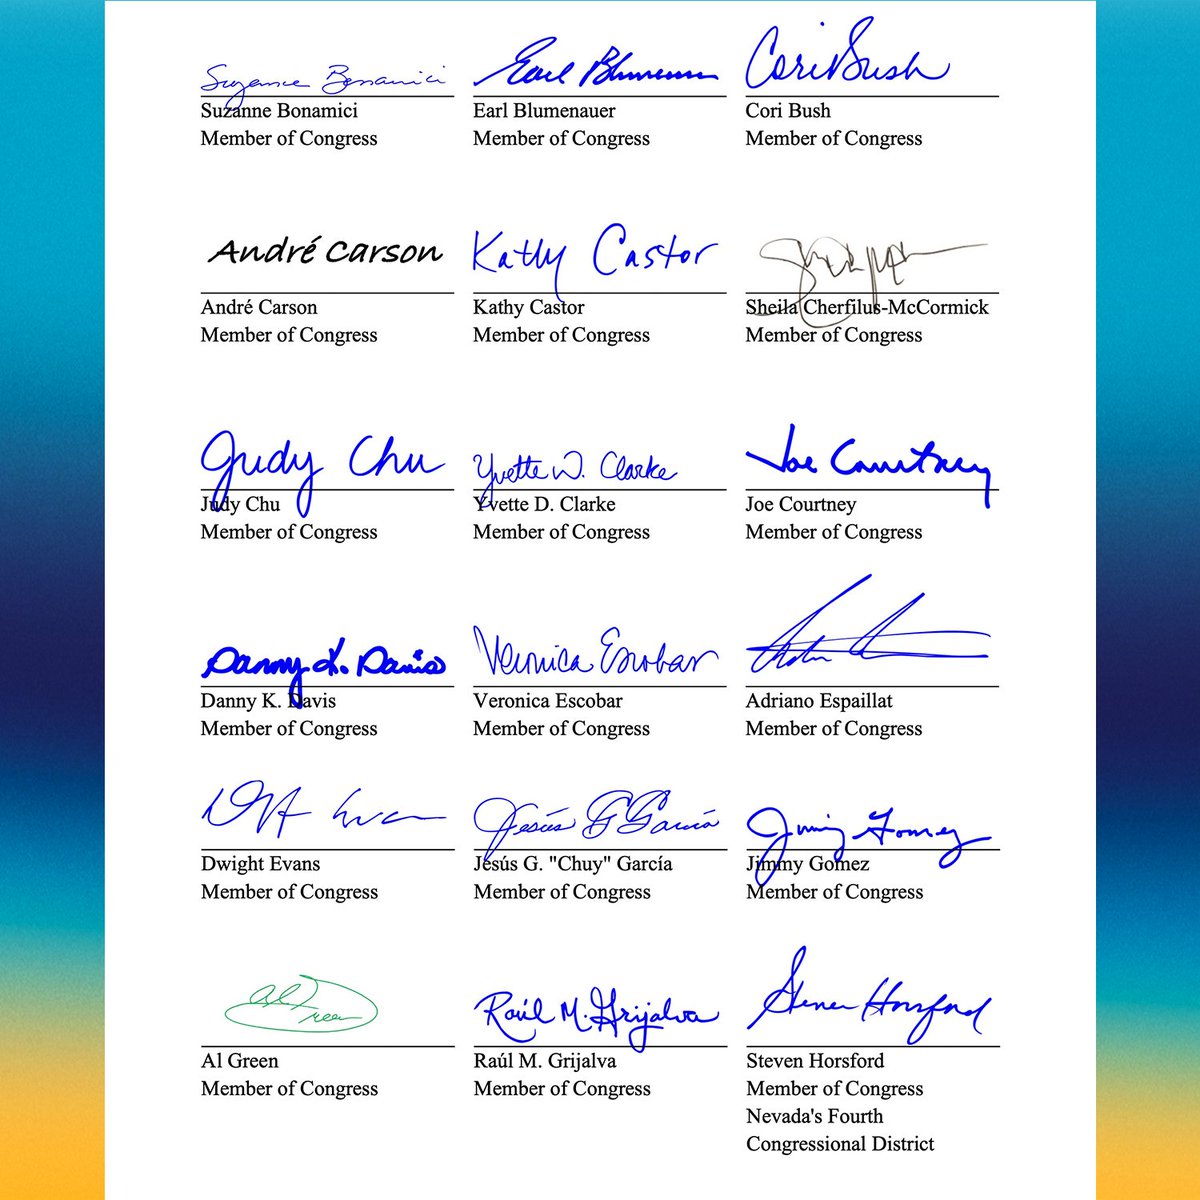 Suzanne Bonamici Earl Blumenauer Cori Bush
Suzanne Bonamici Earl Blumenauer Cori Bush
Member of Congress Member of Congress Member of Congress
André Carson Kathy Castor
André Carson Kathy Castor Sheila Cherfilus-McCormick
Member of Congress Member of Congress Member of Congress
Judy Chu Yvette D. Clarke Joe Courtney
Judy Chu Yvette D. Clarke Joe Courtney
Member of Congress Member of Congress Member of Congress
Danny K. Davis Veronica Escobar
Danny K. Davis Veronica Escobar Adriano Espaillat
Member of Congress Member of Congress Member of Congress
Jesús G García Jimmy Gomez
Dwight Evans Jesús G. "Chuy" García Jimmy Gomez
Member of Congress Member of Congress Member of Congress
Al Green Raúl M. Grijalva Steven Horsford
Al Green Raúl M. Grijalva Steven Horsford
Member of Congress Member of Congress Member of Congress
Nevada's Fourth
Congressional District